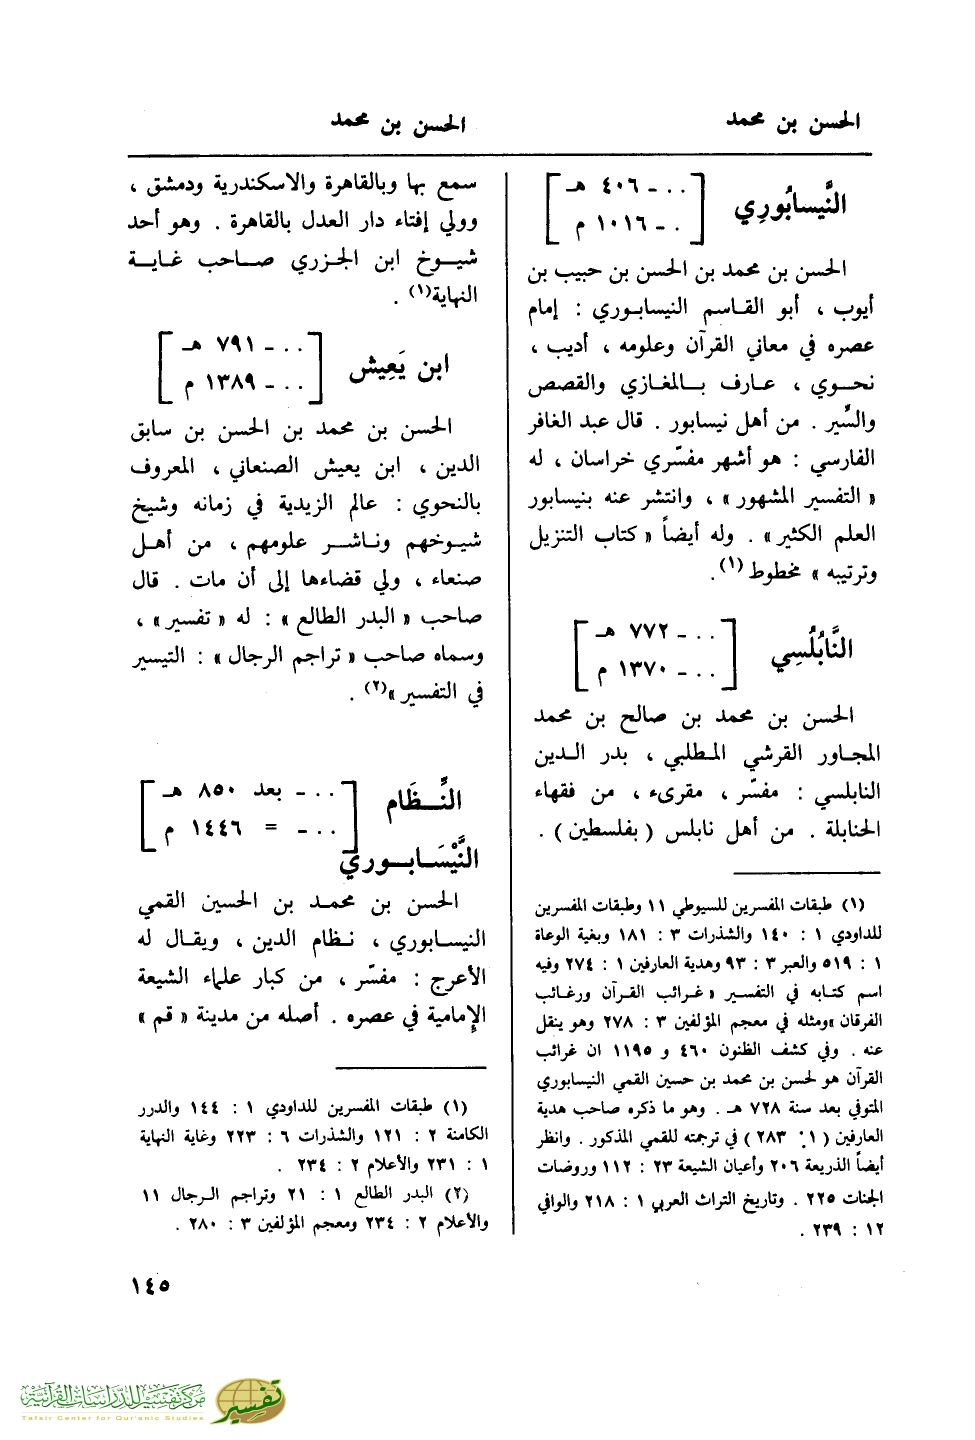 الحسن بن محمد
الحسن بن محمد
النَّيسابُورِي
[ . . ـ ٤٠٦ هـ
. ـ ١٠١٦ م ]
الحسن بن محمد بن الحسن بن حبيب بن
أيوب ، أبو القاسم النيسابوري : إمام
عصره في معاني القرآن وعلومه ، أديب ،
نحوي ، عارف بالمغازي والقصص
والسِّير . من أهل نيسابور . قال عبد الغافر
الفارسي : هو أشهر مفسّري خراسان ، له
« التفسير المشهور » ، وانتشر عنه بنيسابور
العلم الكثير » . وله أيضاً « كتاب التنزيل
وترتيبه » مخطوط (١) .
النَّابُلُسِي
[ . . ـ ٧٧٢ هـ
. . ـ ١٣٧٠ م ]
الحسن بن محمد بن صالح بن محمد
المجاور القرشي المطلبي ، بدر الدين
النابلسي : مفسّر ، مقرىء ، من فقهاء
الحنابلة . من أهل نابلس ( بفلسطين ) .
(١) طبقات المفسرين للسيوطي ١١ وطبقات المفسرين
للداودي ١ : ١٤٠ والشذرات ٣ : ١٨١ وبغية الوعاة
١ : ٥١٩ والعبر ٣ : ٩٣ وهدية العارفين ١ : ٢٧٤ وفيه
اسم كتابه في التفسير « غرائب القرآن ورغائب
الفرقان » ومثله في معجم المؤلفين ٣ : ٢٧٨ وهو ينقل
عنه . وفي كشف الظنون ٤٦٠ و ١١٩٥ ان غرائب
القرآن هو لحسن بن محمد بن حسين القمي النيسابوري
المتوفي بعد سنة ٧٢٨ هـ . وهو ما ذكره صاحب هدية
العارفين ( ١ : ٢٨٣ ) في ترجمته للقمي المذكور . وانظر
أيضاً الذريعة ٢٠٦ وأعيان الشيعة ٢٣ : ١١٢ وروضات
الجنات ٢٢٥ . وتاريخ التراث العربي ١ : ٢١٨ والوافي
١٢ : ٢٣٩ .
سمع بها وبالقاهرة والاسكندرية ودمشق ،
وولي إفتاء دار العدل بالقاهرة . وهو أحد
شيوخ ابن الجزري صاحب غاية
النهاية (١) .
ابن يَعِيش
[ . . . ـ ٧٩١ هـ
. . . ـ ١٣٨٩ م ]
الحسن بن محمد بن الحسن بن سابق
الدين ، ابن يعيش الصنعاني ، المعروف
بالنحوي : عالم الزيدية في زمانه وشيخ
شيوخهم وناشر علومهم ، من أهل
صنعاء ، ولي قضاءها إلى أن مات . قال
صاحب « البدر الطالع » : له « تفسير » ،
وسماه صاحب « تراجم الرجال » : التيسير
في التفسير » (٢) .
النِّظَام
النَّيْسَابوري
[ . . . ـ بعد ٨٥٠ هـ
. . . ـ = ١٤٤٦ م ]
الحسن بن محمد بن الحسين القمي
النيسابوري ، نظام الدين ، ويقال له
الأعرج : مفسّر ، من كبار علماء الشيعة
الإمامية في عصره . أصله من مدينة « قم »
(١) طبقات المفسرين للداودي ١ : ١٤٤ والدرر
الكامنة ٢ : ١٢١ والشذرات ٦ : ٢٢٣ وغاية النهاية
١ : ٢٣١ والأعلام ٢ : ٢٣٤ .
(٢) البدر الطالع ١ : ٢١ وتراجم الرجال ١١
والأعلام ٢ : ٢٣٤ ومعجم المؤلفين ٣ : ٢٨٠ .
١٤٥
مركز تفسير للدراسات القرآنية
Tafsir Center for Qur'anic Studies
تفسير